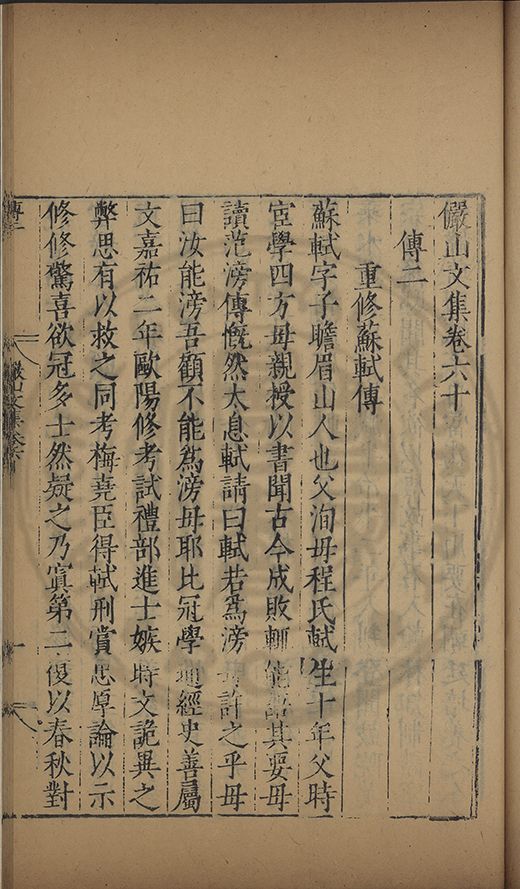 儼山文集卷六十
傳二
重修蘇軾傳
蘇軾字子瞻眉山人也父洵母程氏軾生十年父時
宦學四方母親授以書聞古今成敗輒能語其要母
讀范滂傳慨然大息軾請曰軾若為滂母許之乎母
曰汝能滂吾顧不能為滂母耶比冠學通經史善屬
文嘉祐二年歐陽修考試禮部進士嫉時文詭異之
弊思有以救之同考梅堯臣得軾刑賞忠厚論以示
修修驚喜欲冠多士然疑之乃寘第二復以春秋對